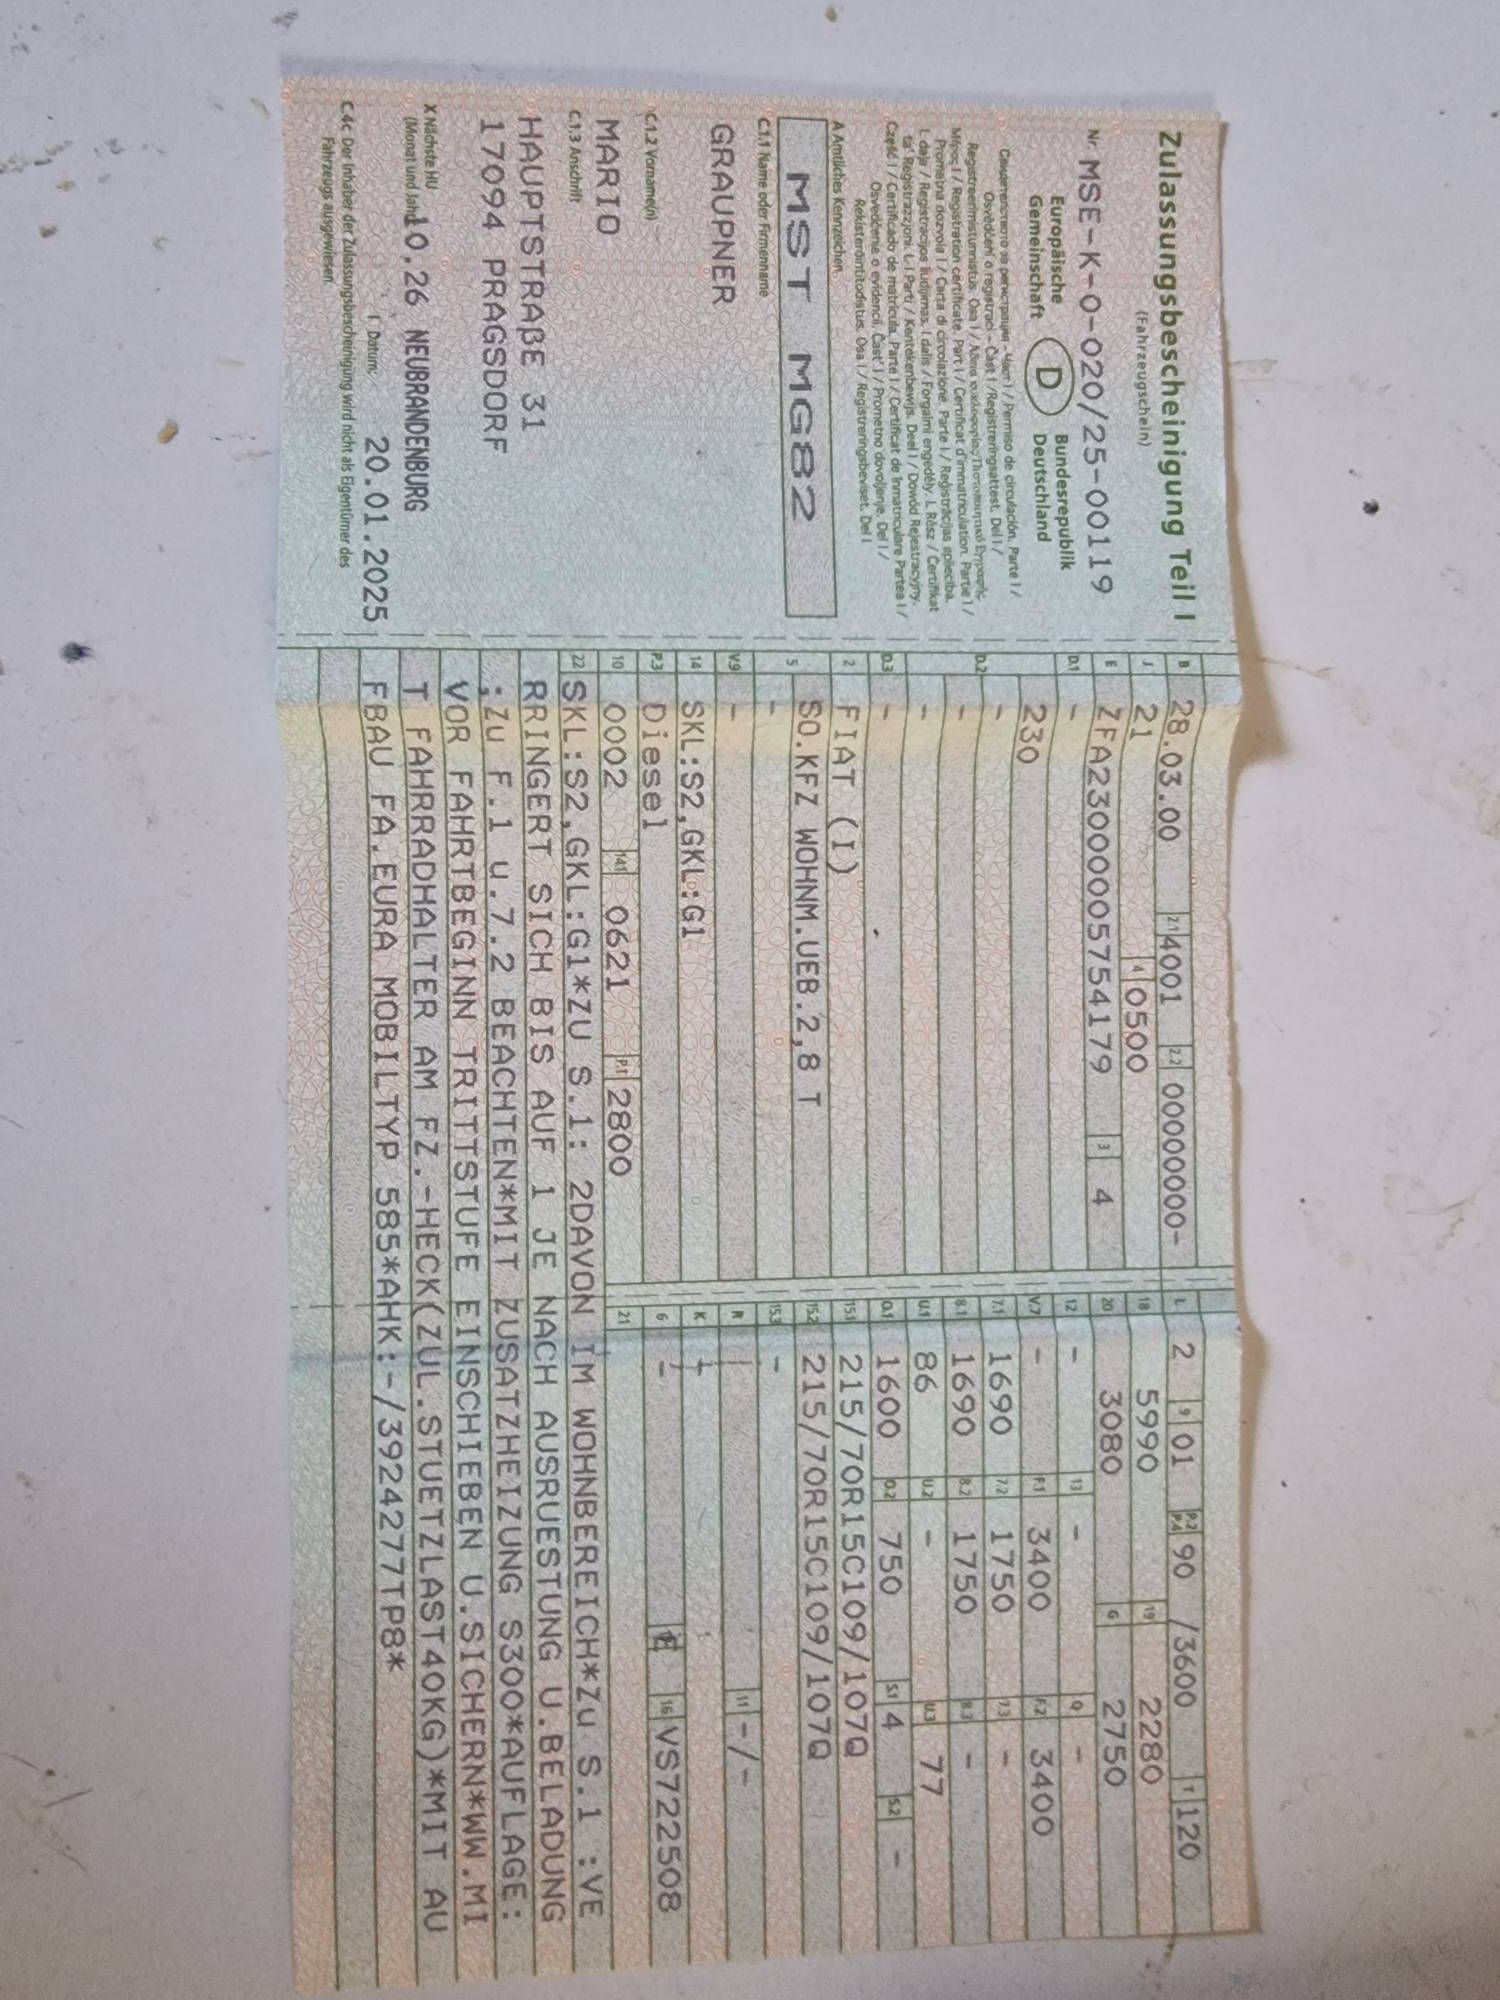 Zulassungsbescheinigung Teil I
(Fahrzeugschein)
Nr. MSE-K-0-020/25-00119
Europäische Gemeinschaft
D
Bundesrepublik Deutschland
A Amtliches Kennzeichen
MST MG82
C.1.1 Name oder Firmenname
GRAUPNER
C.1.2 Vorname(n)
MARIO
C.1.3 Anschrift
HAUPTSTRAßE 31
17094 PRAGSDORF
X Nächste HU
(Monat und Jahr) 10.26 NEUBRANDENBURG
Datum: 20.01.2025
C.4c Der Inhaber der Zulassungsbescheinigung wird nicht als Eigentümer des
Fahrzeugs ausgewiesen.
B 28.03.00 2.1 4001 2.2 0000000-
J 21 4 0500
E ZFA23000005754179 3 4
D.1 -
230
D.2 -
-
-
D.3 -
2 FIAT (I)
5 SO.KFZ WOHNM.UEB.2,8 T
-
V.9 -
14 SKL:S2,GKL:G1
P.3 Diesel
10 0002 14.1 0621 P.1 2800
L 2 9 01 P.2 P.4 90 /3600 T 120
18 5990 19 2280
20 3080 G 2750
12 - 13 - Q -
V.7 - F.1 3400 F.2 3400
7.1 1690 7.2 1750 7.3 -
8.1 1690 8.2 1750 8.3 -
U.1 86 U.2 - U.3 77
O.1 1600 O.2 750 S.1 4 S.2 -
15.1 215/70R15C109/107Q
15.2 215/70R15C109/107Q
15.3 -
R 11 -/-
K -
6 - 16 VS722508
21
22 SKL:S2,GKL:G1*ZU S.1: 2DAVON IM WOHNBEREICH*ZU S.1 :VE
RRINGERT SICH BIS AUF 1 JE NACH AUSRUESTUNG U.BELADUNG
;ZU F.1 u.7.2 BEACHTEN*MIT ZUSATZHEIZUNG S300*AUFLAGE:
VOR FAHRTBEGINN TRITTSTUFE EINSCHIEBEN U.SICHERN*WW.MI
T FAHRRADHALTER AM FZ.-HECK(ZUL.STUETZLAST40KG)*MIT AU
FBAU FA.EURA MOBILTYP 585*AHK:-/3924277TP8*